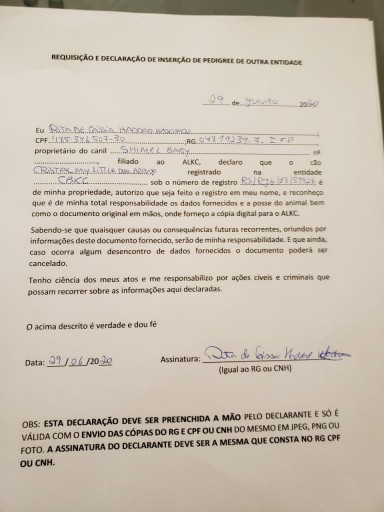 REQUISIÇÃO E DECLARAÇÃO DE INSERÇÃO DE PEDIGREE DE OUTRA ENTIDADE
29 de Junho 2020
Eu Rita de Cassia
CPF ;RG
proprietário do canil Baby nº
, filiado ao ALKC, declaro que o cão
CRISTAL MY LITTLE registrado na entidade
CBKC sob o número de registro e
de minha propriedade, autorizo que seja feito o registro em meu nome, e reconheço
que é de minha total responsabilidade os dados fornecidos e a posse do animal bem
como o documento original em mãos, onde forneço a cópia digital para o ALKC.
Sabendo-se que quaisquer causas ou consequências futuras recorrentes, oriundos por
informações deste documento fornecido, serão de minha responsabilidade. E que ainda,
caso ocorra algum desencontro de dados fornecidos o documento poderá ser
cancelado.
Tenho ciência dos meus atos e me responsabilizo por ações cíveis e criminais que
possam recorrer sobre as informações aqui declaradas.
O acima descrito é verdade e dou fé
Data: 29/06/2020 Assinatura: Rita de Cassia
(Igual ao RG ou CNH)
OBS: ESTA DECLARAÇÃO DEVE SER PREENCHIDA A MÃO PELO DECLARANTE E SÓ É
VÁLIDA COM O ENVIO DAS CÓPIAS DO RG E CPF OU CNH DO MESMO EM JPEG, PNG OU
FOTO. A ASSINATURA DO DECLARANTE DEVE SER A MESMA QUE CONSTA NO RG CPF
OU CNH.